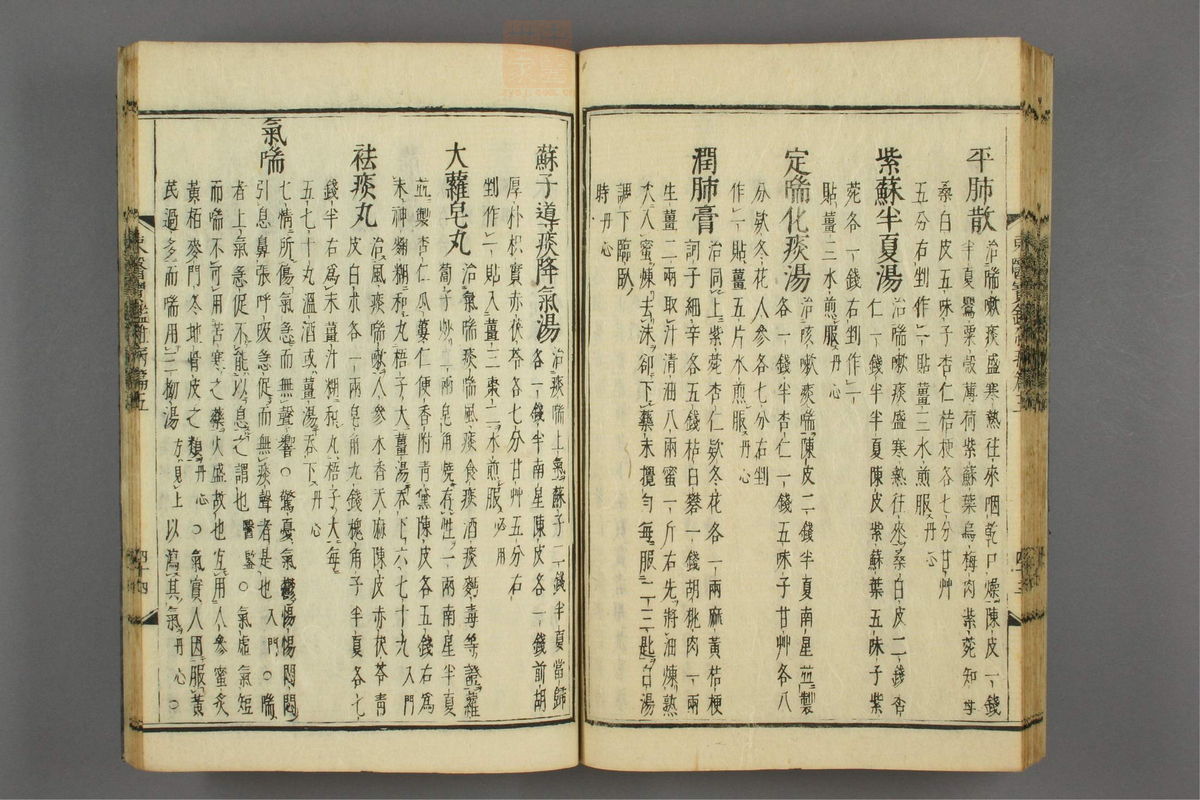 平肺散 治喘嗽痰盛寒熱往來咽乾口燥陳皮一錢
半夏罌粟殼薄荷紫蘇葉烏梅肉紫菀知母
桑白皮五味子杏仁桔梗各七分甘艸
五分右剉作一貼薑三水煎服丹心
紫蘇半夏湯 治喘嗽痰盛寒熱往來桑白皮二錢杏
仁一錢半半夏陳皮紫蘇葉五味子紫
菀各一錢右剉作一
貼薑三水煎服丹心
定喘化痰湯 治咳嗽痰喘陳皮二錢半夏南星並製
各一錢半杏仁一錢五味子甘艸各八
分欵冬花人參各七分右剉
作一貼薑五片水煎服丹心
潤肺膏 治同上紫菀杏仁欵冬花各一兩麻黃桔梗
訶子細辛各五錢枯白礬一錢胡桃肉一兩
生薑二兩取汁清油八兩蜜一斤右先將油煉熟
次入蜜煉去沫卻下藥末攪勻每服二三匙白湯
調下臨臥
時丹心
蘇子導痰降氣湯 治痰喘上氣蘇子二錢半夏當歸
各一錢半南星陳皮各一錢前胡
厚朴枳實赤茯苓各七分甘艸五分右
剉作一貼入薑三棗二水煎服必用
大蘿皂丸 治氣喘痰喘風痰食痰酒痰麪毒等證蘿
葍子炒二兩皂角燒存性一兩南星半夏
並製杏仁瓜蔞仁便香附青黛陳皮各五錢右爲
末神麴糊和丸梧子大薑湯呑下六七十丸入門
祛痰丸 治風痰喘嗽人參木香天麻陳皮赤茯苓青
皮白朮各一兩皂角九錢槐角子半夏各七
錢半右爲末薑汁糊和丸梧子大每
五七十丸溫酒或薑湯呑下丹心
氣喘
七情所傷氣急而無聲響○驚憂氣鬱惕惕悶悶
引息鼻張呼吸急促而無痰聲者是也入門○喘
者上氣急促不能以息之謂也醫鑑○氣虛氣短
而喘不可用苦寒之藥火盛故也宜用人參蜜炙
黃栢麥門冬地骨皮之類丹心○氣實人因服黃
芪過多而喘用三拗湯方見上以瀉其氣丹心○
四十四